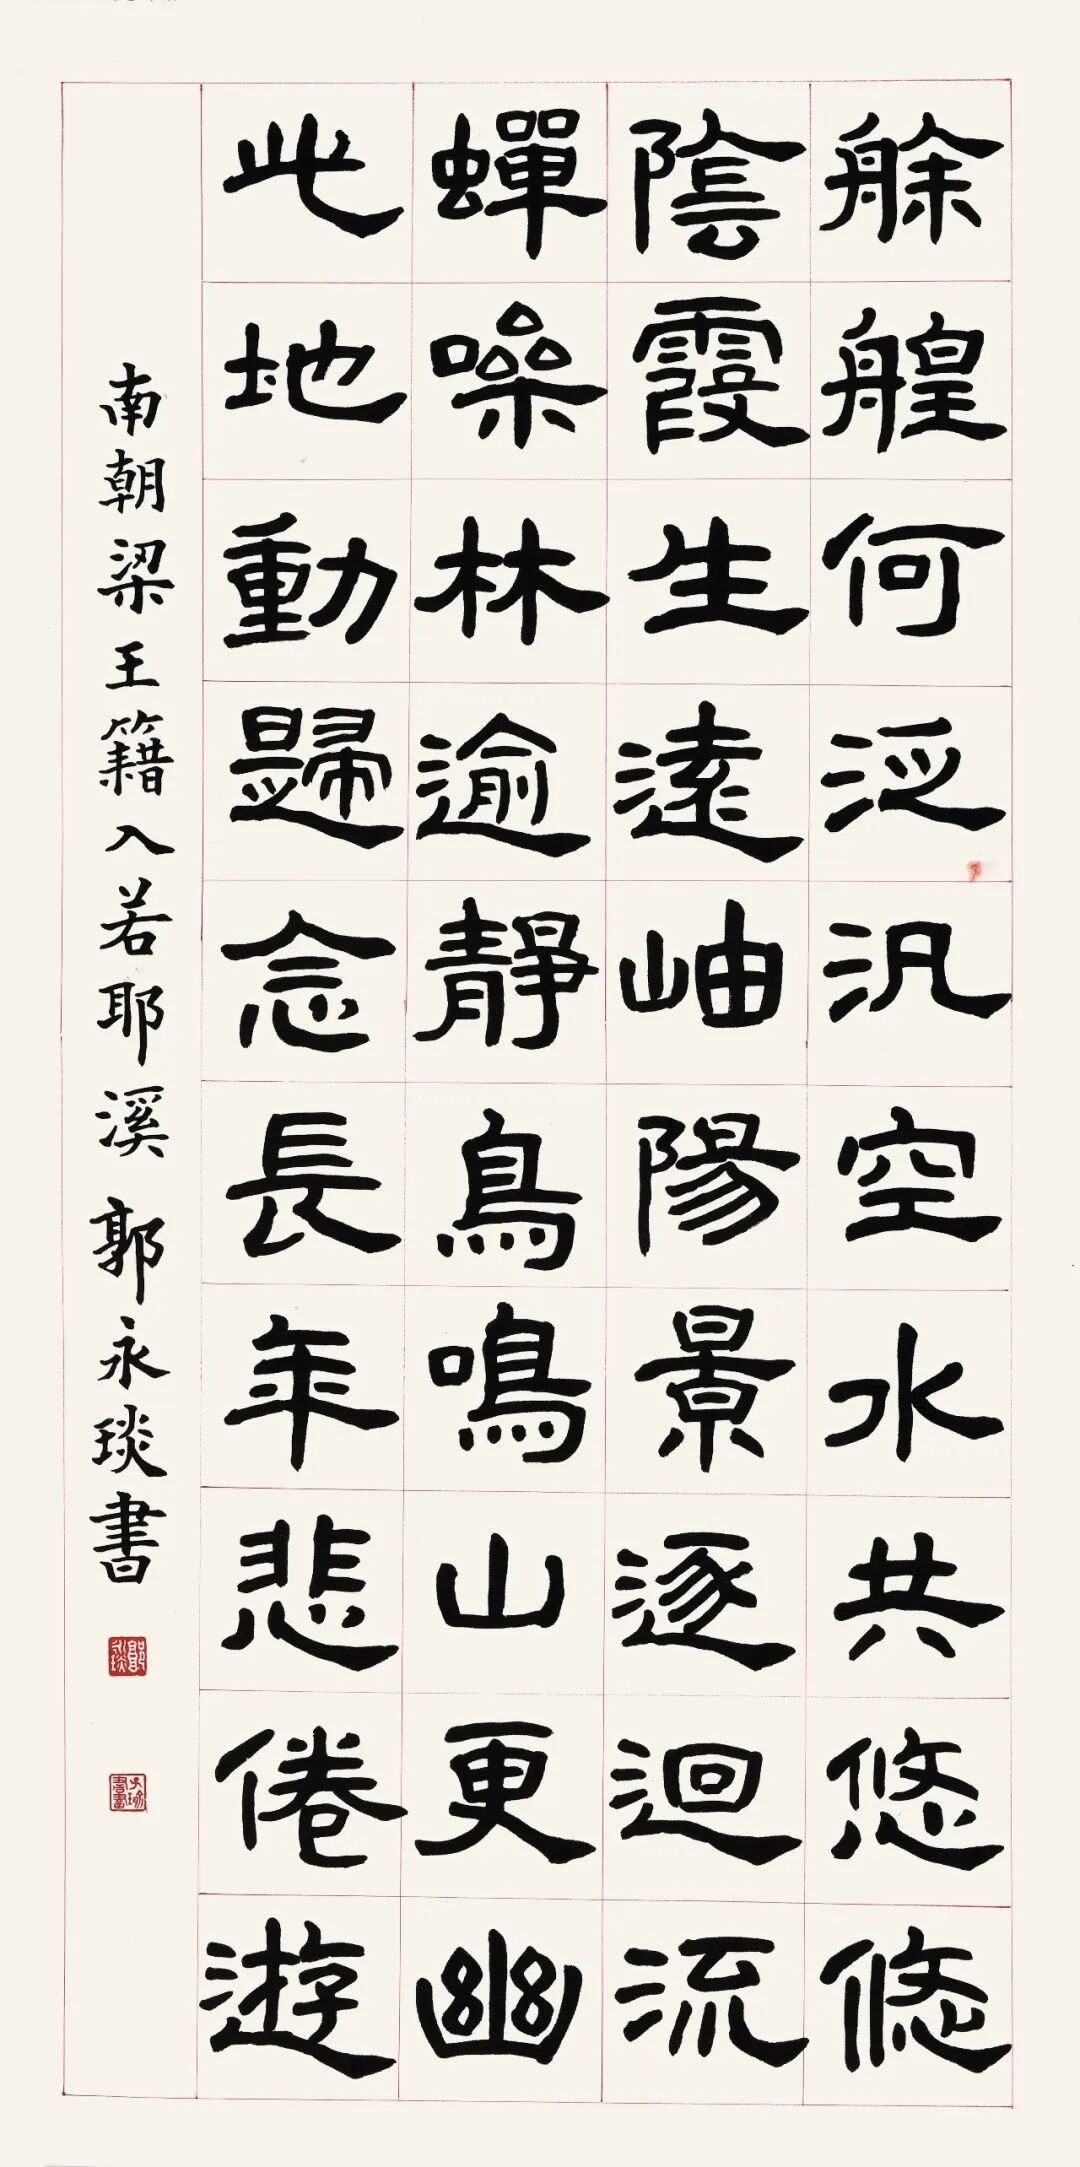 艅艎何泛汎空水共悠悠
陰霞生遠岫陽景逐迴流
蟬噪林逾靜鳥鳴山更幽
此地動歸念長年悲倦遊
南朝梁王籍入若耶溪 郭永琰書
郭永琰